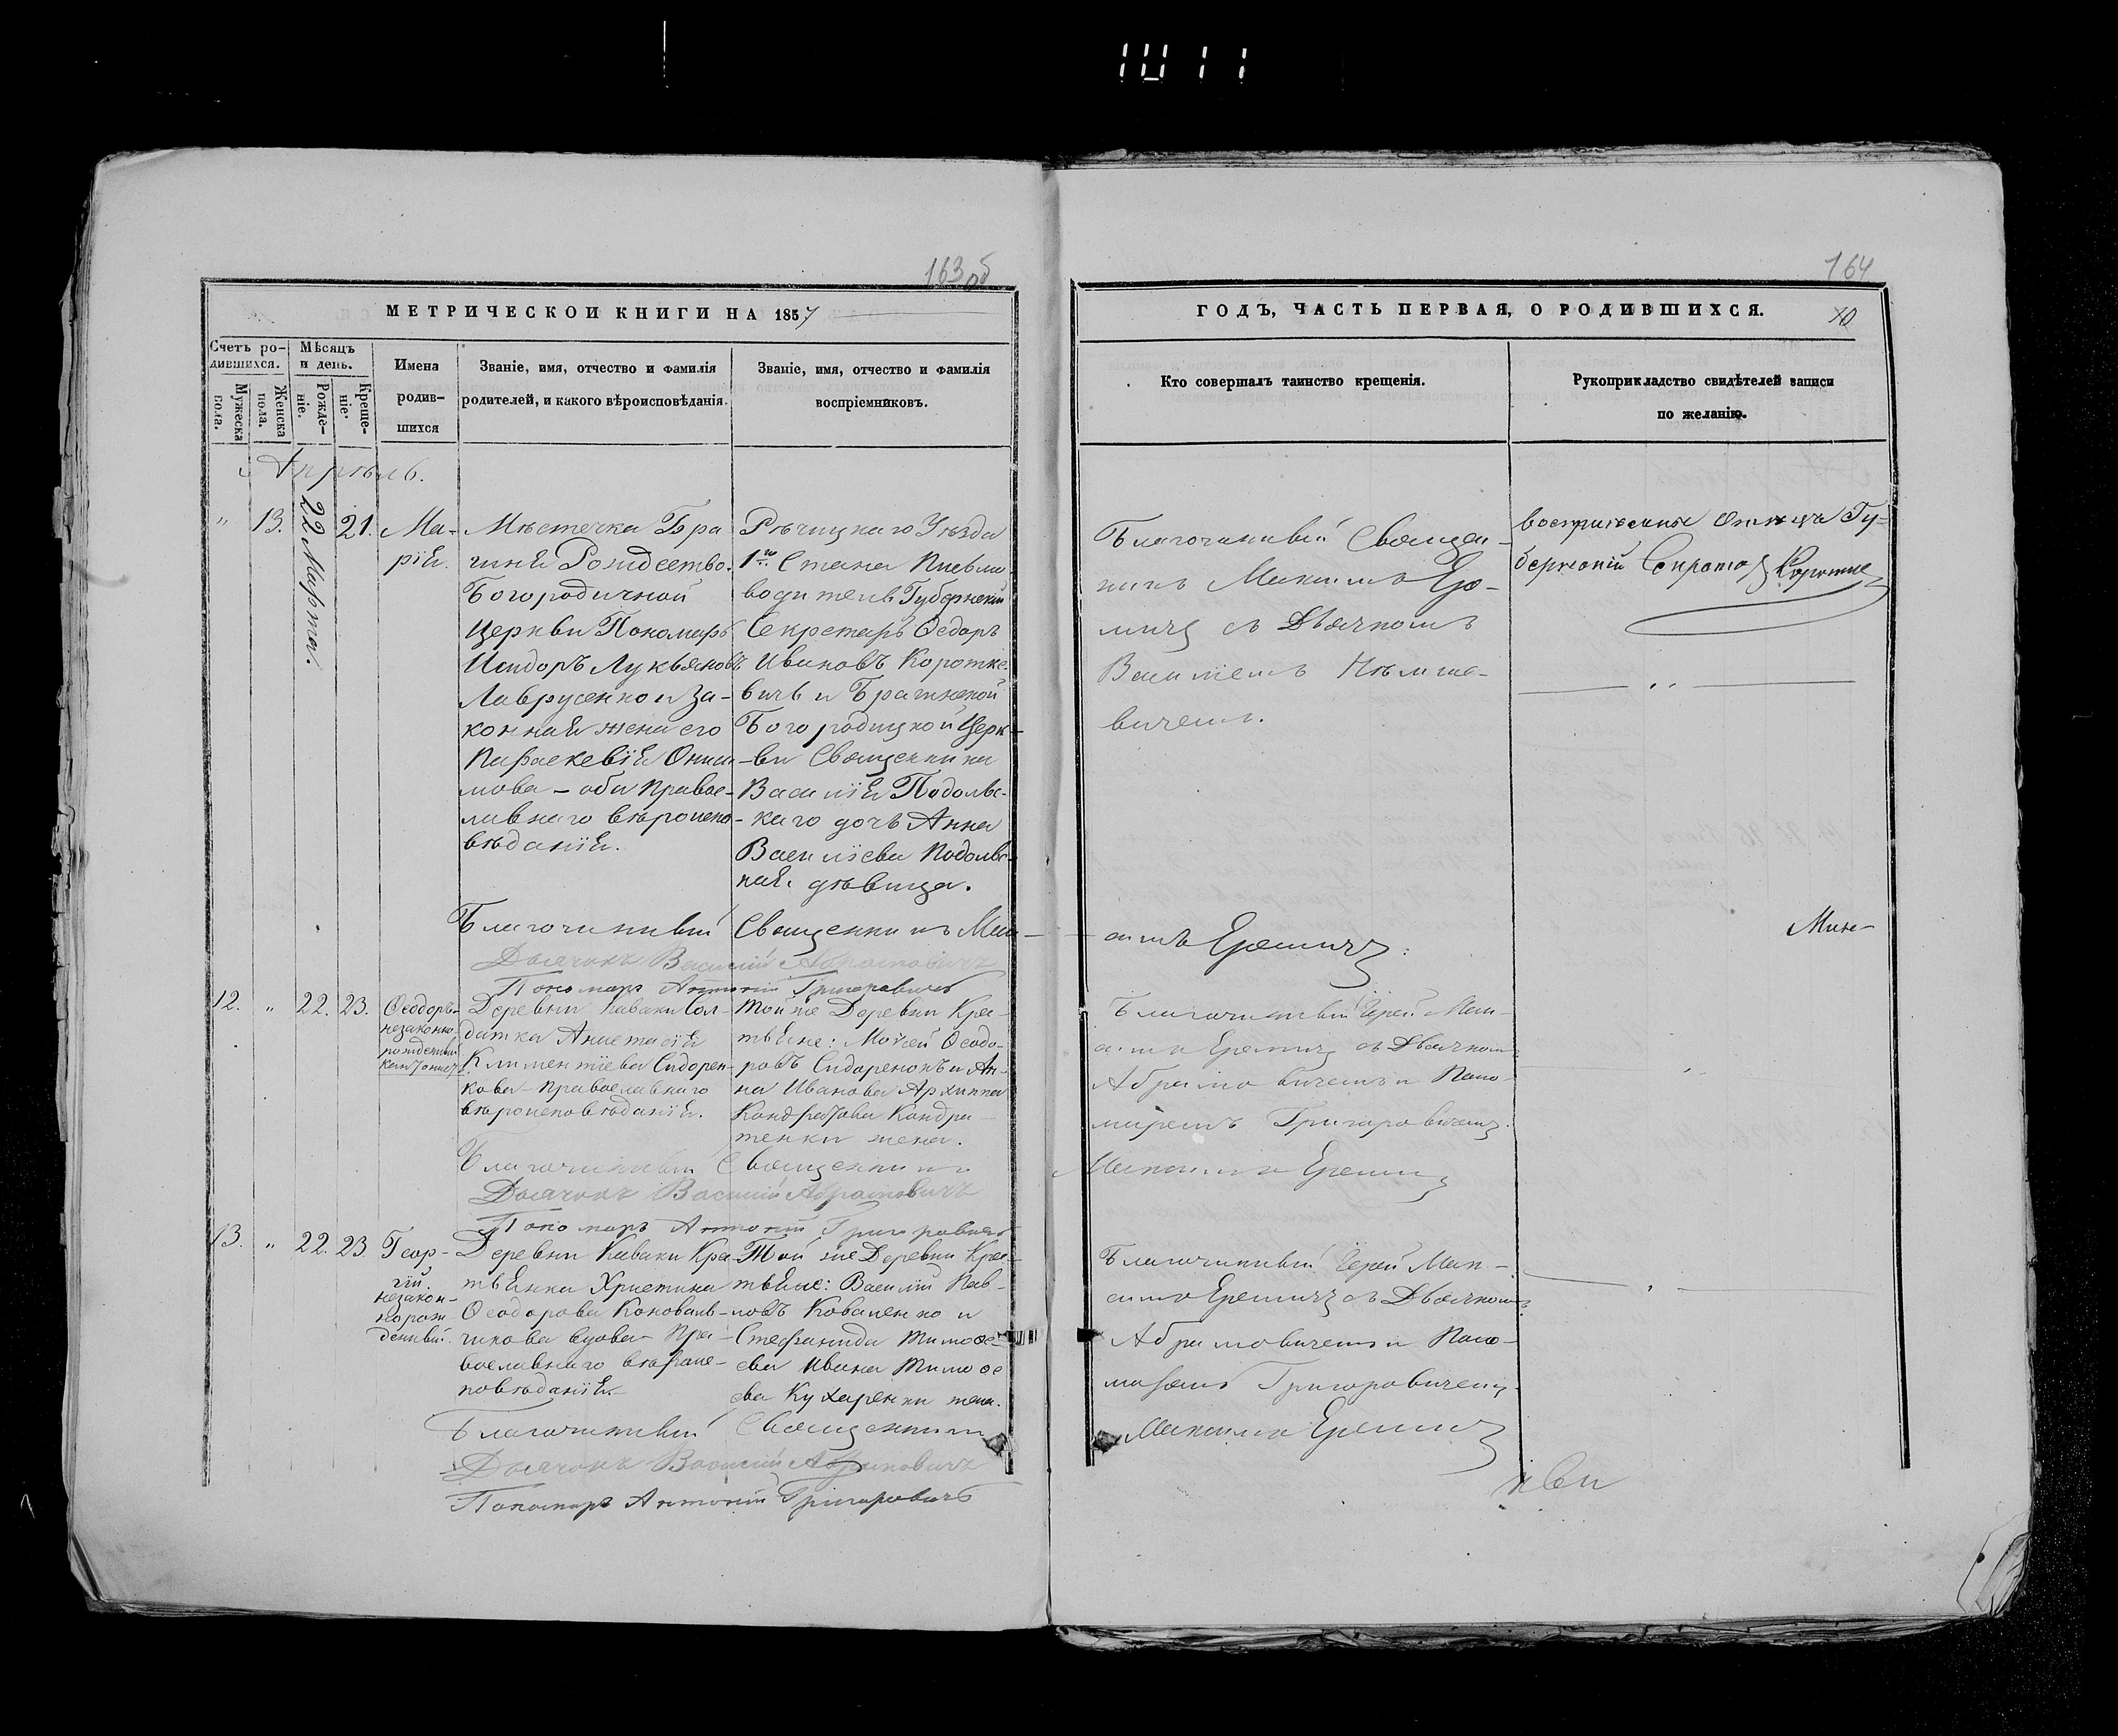 1011
163 об
МЕТРИЧЕСКОИ КНИГИ НА 1857
Счетъ ро-
дившихся.
Мужеска
пола.
Женска
пола.
Мѣсяцъ
и день.
Рожде-
ніе.
Креще-
ніе.
Имена
родив-
шихся
Званіе, имя, отчество и фамилія
родителей, и какого вѣроисповѣданія.
Званіе, имя, отчество и фамилія
воспріемниковъ.
Апрѣль.
" 13. 22 Марта. 21.
Ма-
рія.
Мѣстечка Бра
гиня Рождество-
Богородичной
Церкви Пономарь
Исидоръ Лукьяновъ
Лаврусенко и за-
конная жена его
ПараскевіяОниси
мова – оба право-
лавнаго вѣроиспо
вѣданія.
Рѣчицкаго Уѣзда
1го Стана Письмо
водитель Губернскій
Секретарь Ѳедоръ
Ивановъ Коротке
вичъ и Брагинской
Богородицкой Церк-
-ви Священника
Василія Подольс-
-каго дочь Анна
Василіева Подольс-
кая дѣвица.
Благочинный Священникъ Мак-
Дьячокъ Василій Абрамовичъ
Пономарь Антоній Григоровичъ
12. " 22. 23.
Ѳеодоръ
незаконно
рожденный
Деревни Каваки Сол-
датка Анастасія
Климентіева Сидорен-
кова православнаго
вѣроисповѣданія.
Той же Деревни Крес-
тьяне: Моѵсей Ѳеодо-
ровъ Сидоренокъ и Ан-
на Иванова Архиппа
Кондратова Кондра-
тенки жена.
Благочинный Священникъ
Дьячокъ Василій Абрамовичъ
Пономарь Антоній Григоровичъ
13. " 22. 23
Геор-
гій.
незакон-
норож-
денный.
Деревни Каваки Крес-
тьянка Христина
Ѳеодорова Коноваль-
чикова вдова Пра-
вославнаго вѣроис-
повѣданія.
Той же Деревни Крес-
тьяне: Василій Пав-
ловъ Коваленко и
Стефанида Тимоѳе-
ева Ивана Тимоѳе
ева Кухаренки жена.
Благочинный Священникъ
Дьячокъ Василій Абрамовичъ
Пономарь Антоній Григоровичъ
164
ГОДЪ, ЧАСТЬ ПЕРВАЯ, О РОДИВШИХСЯ.
Кто совершалъ таинство крещенія.
Рукоприкладство свидѣтелей записи
по желанію.
Благочинный Священ-
никъ Максимъ Ере-
мичъ съ Дьячкомъ
Василіемъ
вичемъ.
симъ Еремичъ:
Благочинный Іерей Мак-
симъ Еремичъ съ Дьячкомъ
Абрамовичемъ и Поно-
маремъ Григоровичемъ.
Максимъ Еремичъ
Благочинный Іерей Мак-
симъ Еремичъ съ Дьячкомъ
Абрамовичемъ и Поно-
маремъ Григоровичемъ.
Максимъ Еремичъ